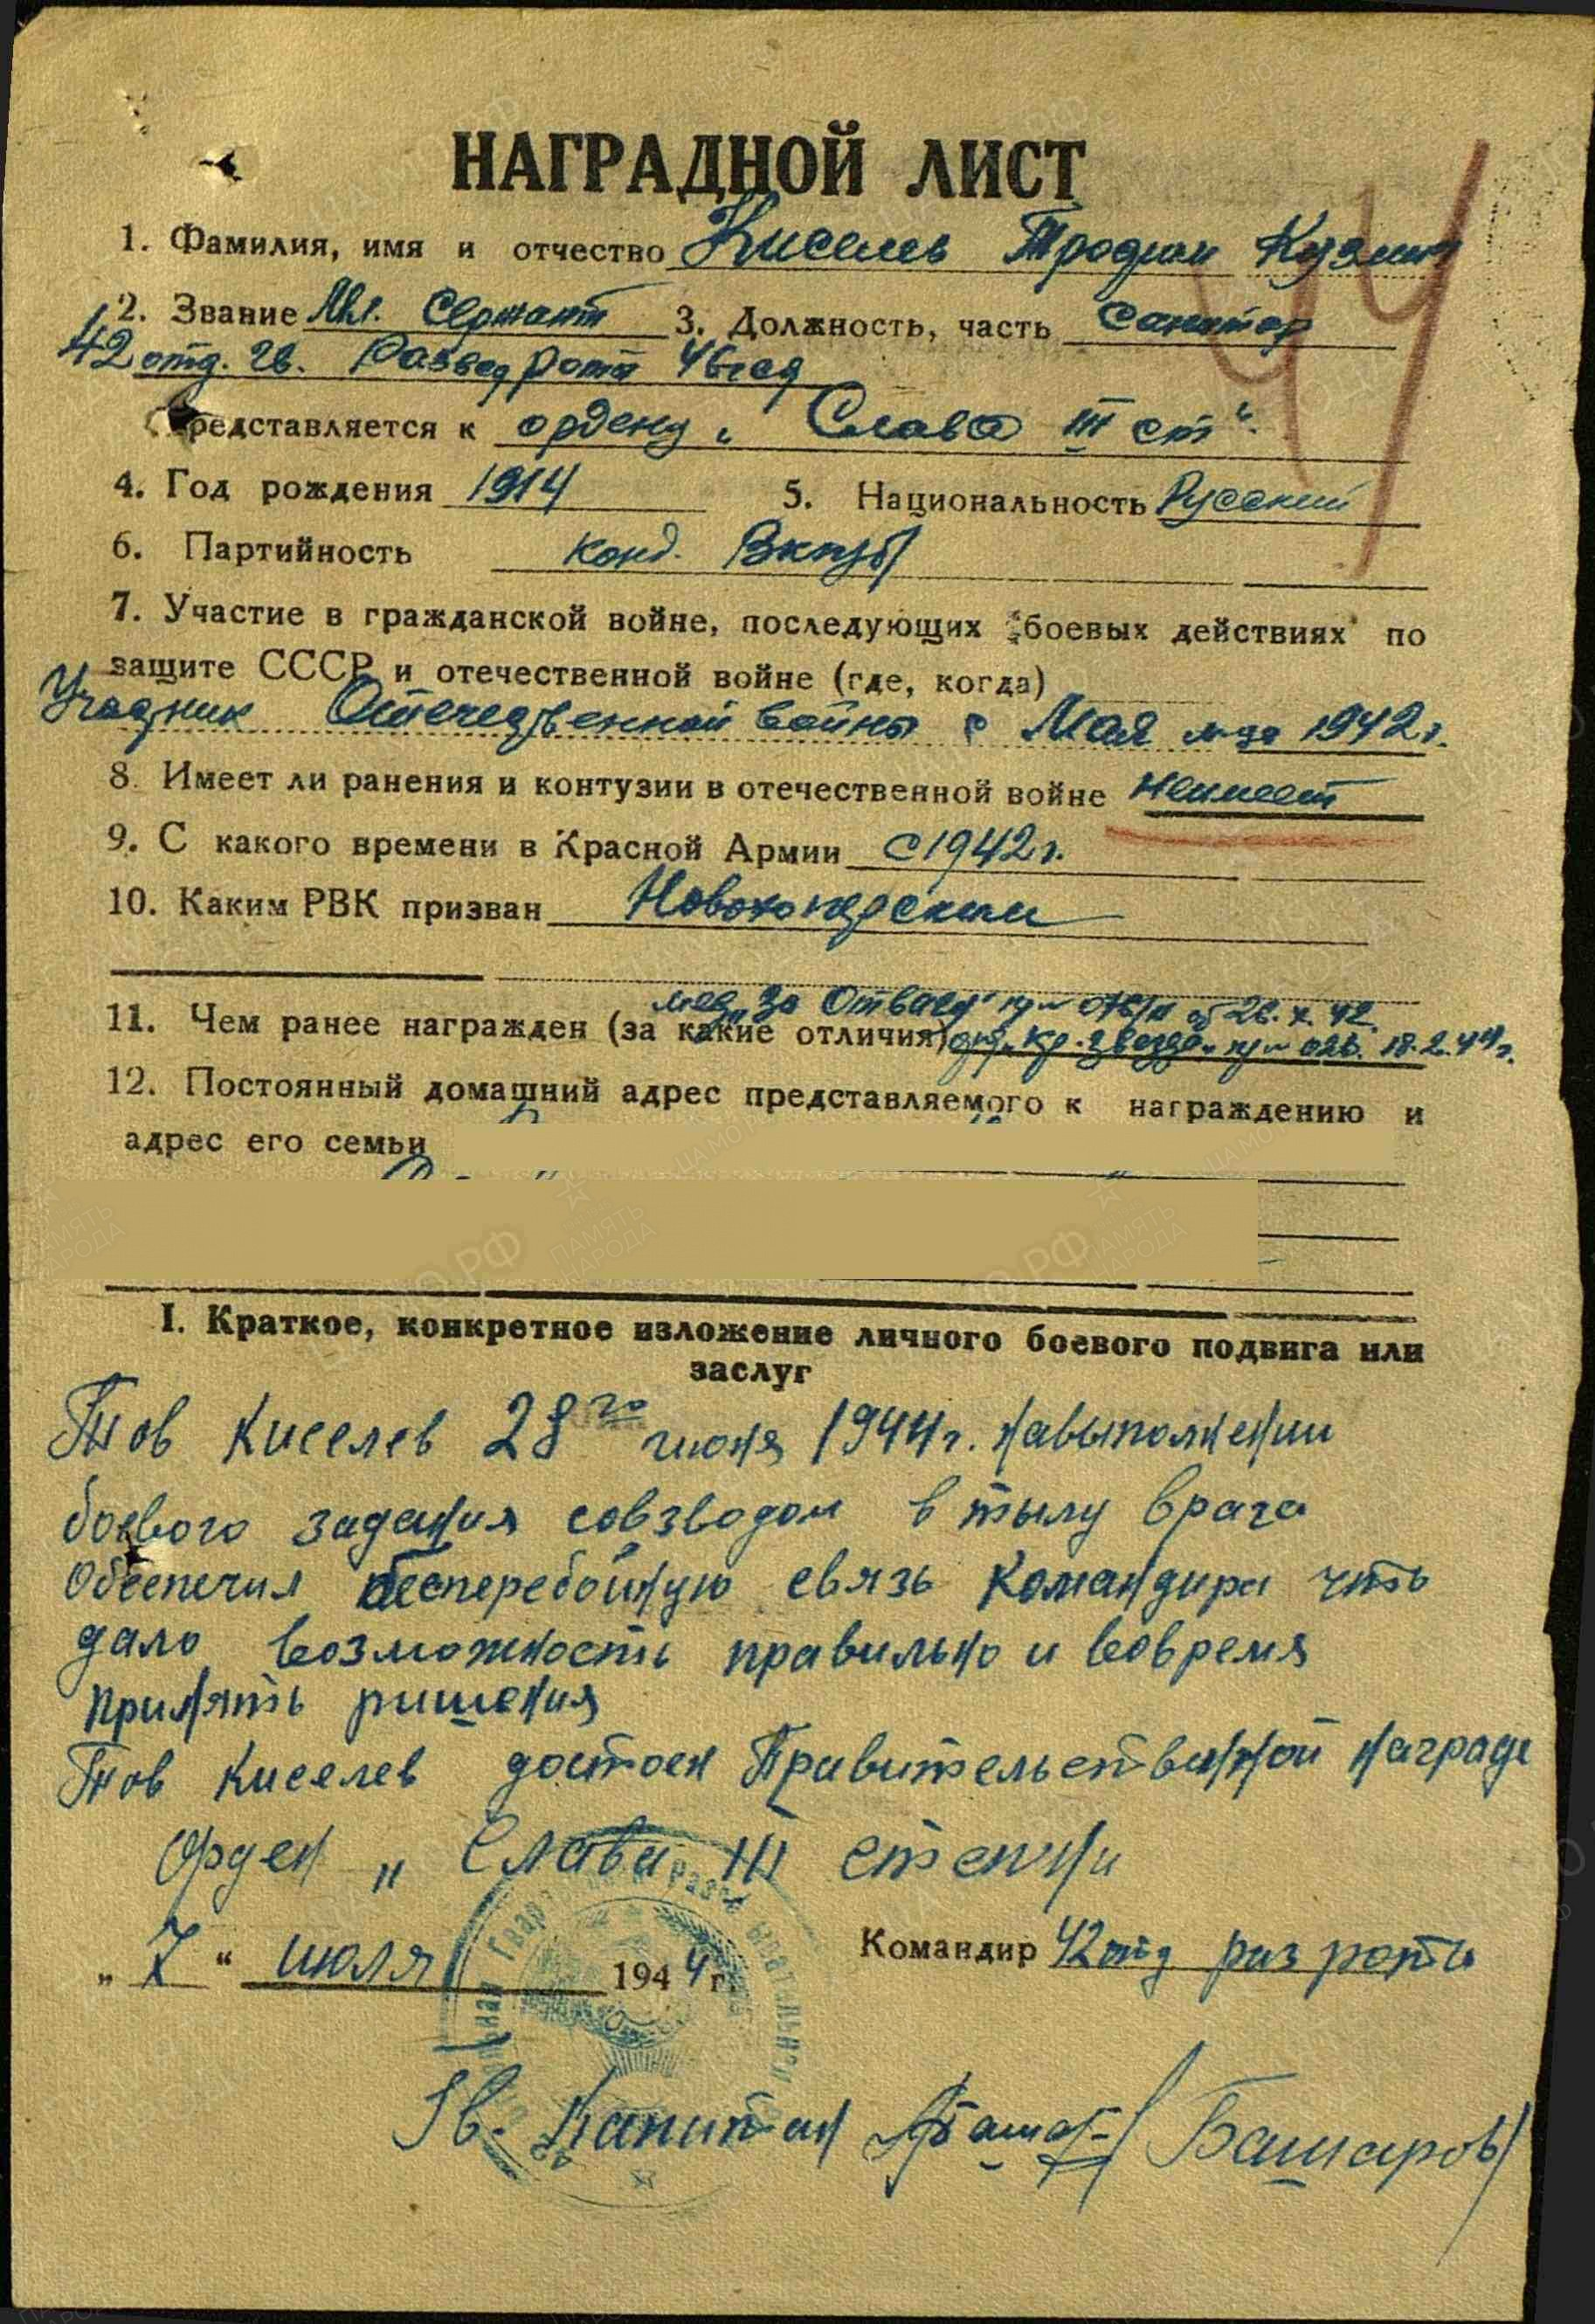 НАГРАДНОЙ ЛИСТ
1. Фамилия, имя и отчество Киселев Кузмич
2. Звание Мл. Сержант 3. Должность, часть Санитар
42 отд. гв. Развед роты 46 гсд
Представляется к ордену „Слава III ст“.
4. Год рождения 1914 5. Национальность Русский
6. Партийность канд. ВКП(б)
7. Участие в гражданской войне, последующих боевых действиях по
защите СССР и отечественной войне (где, когда)
Участник Отечественной войны с Мая м-ца 1942 г.
8. Имеет ли ранения и контузии в отечественной войне неимеет
9. С какого времени в Красной Армии с 1942 г.
10. Каким РВК призван Новохоперским
мед. „За Отвагу“ пр № от 26. X. 42.
11. Чем ранее награжден (за какие отличия) орд. „Кр. звезда“ пр № 026. 18.2.44 г.
12. Постоянный домашний адрес представляемого к награждению и
адрес его семьи
I. Краткое, конкретное изложение личного боевого подвига или
заслуг
Тов Киселев 28го июня 1944 г. навыполнении
боевого задания совзводом в тылу врага
Обеспечил бесперебойную связь командира что
дало возможность правильно и вовремя
принять ришения
Тов Киселев достоен Правительственной награде
Орден „Слава III степени
„7“ июля 1944 г. Командир 42 отд раз роты
Гв. Капитан /Башаров/